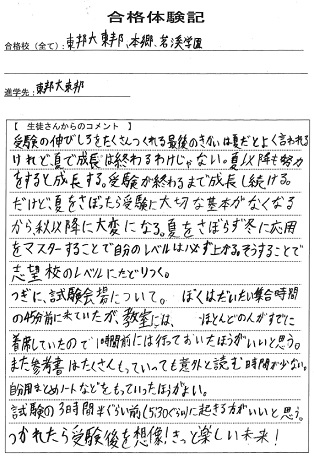 合格体験記
合格校(全て):東邦大東邦、本郷、茗溪学園
進学先:東邦大東邦
【 生徒さんからのコメント 】
受験の伸びしろをたくさんつくれる最後のきかいは夏だとよく言われる
けれど、夏で成長は終わるわけじゃない。夏以降も努力
をすると成長する。受験が終わるまで成長し続ける。
だけど、夏をさぼったら受験に大切な基本がなくなる
から秋以降に大変になる。夏をさぼらず冬に応用
をマスターすることで自分のレベルは必ず上がる。そうすることで
志望校のレベルにたどりつく。
つぎに、試験会場について。 ぼくはだいたい集合時間
の45分前に来ていたが、教室には、 ほとんどの人がすでに
着席していたので1時間前には行っておいたほうがいいと思う。
また参考書はたくさんもっていっても意外と読む時間が少ない。
自分用まとめノートなどをもっていったほうがよい。
試験の3時間半ぐらい前(5:30ぐらい)に起きる方がいいと思う。
つかれたら受験後を想像!きっと楽しい未来!